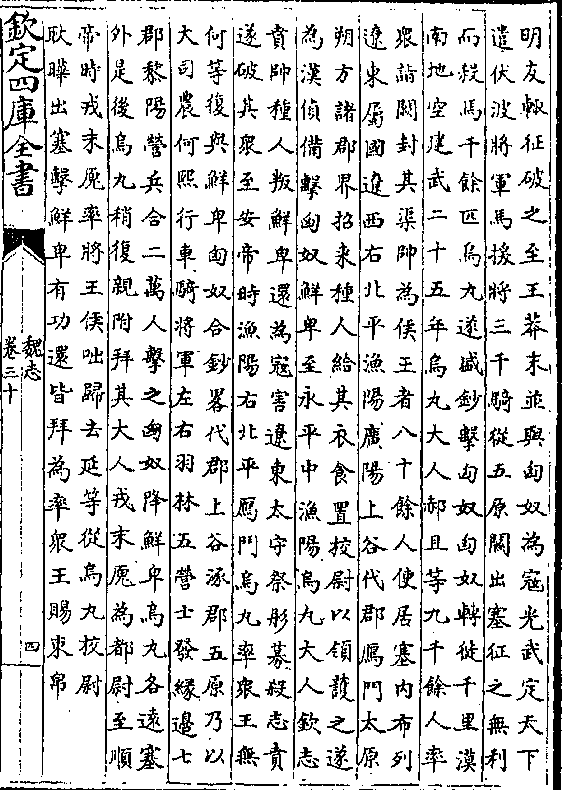 明友輙征破之至王莽末並與匈奴為寇光武定天下
遣伏波將軍馬援將三千騎從五原關出塞征之無利
而殺馬千餘匹烏九遂盛鈔擊匈奴匈奴轉徙千里漠
南地空建武二十五年烏九大人郝且等九千餘人率
衆詣闕封其渠帥為侯王者八十餘人使居塞內布列
遼東屬國遼西右北平漁陽廣陽上谷代郡鴈門太原
朔方諸郡界招来種人給其衣食置校尉以領護之遂
為漢偵備擊匈奴鮮卑至永平中漁陽烏九大人欽志
賁帥種人叛鮮卑還為寇害遼東太守祭肜募殺志賁
遂破其衆至安帝時漁陽右北平鴈門烏九率衆王無
何等復與鮮卑匈奴合鈔畧代郡上谷涿郡五原乃以
大司農何熙行車騎將軍左右羽林五營士發緣邊七
郡黎陽營兵合二萬人擊之匈奴降鮮卑烏九各還塞
外是後烏九稍復親附拜其大人戎末廆為都尉至順
帝時戎末廆率將王侯咄歸去延等從烏九校尉
耿曄出塞擊鮮卑有功還皆拜為率衆王賜束帛
欽定四庫全書
魏志
卷三十
四